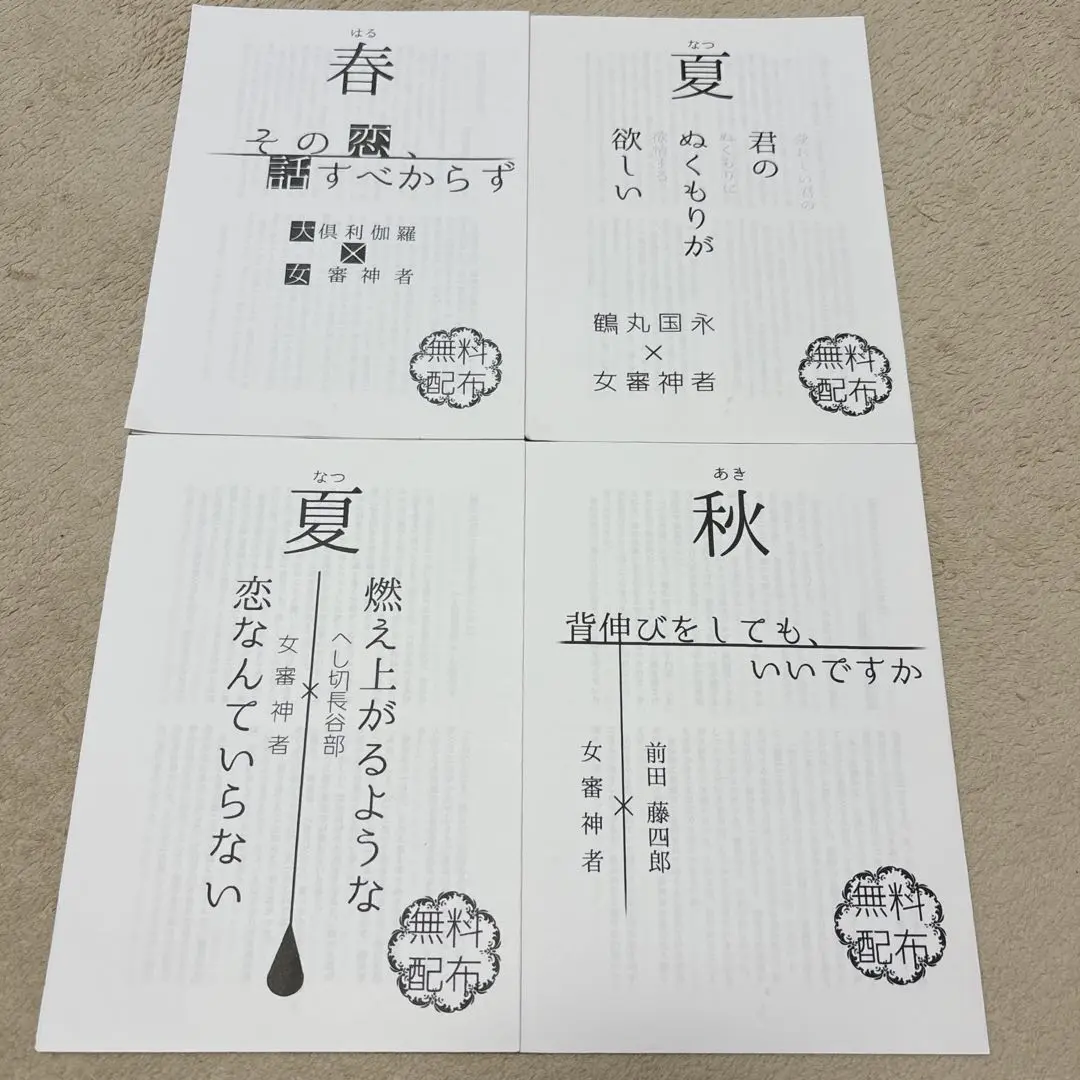 はる
春
その恋、
話すべからず
大倶利伽羅
×
女審神者
無料
配布
なつ
夏
君の
ぬくもりが
欲しい
鶴丸国永
×
女審神者
無料
配布
なつ
夏
燃え上がるような
恋なんていらない
へし切長谷部
×
女審神者
無料
配布
あき
秋
背伸びをしても、
いいですか
前田 藤四郎
×
女審神者
無料
配布